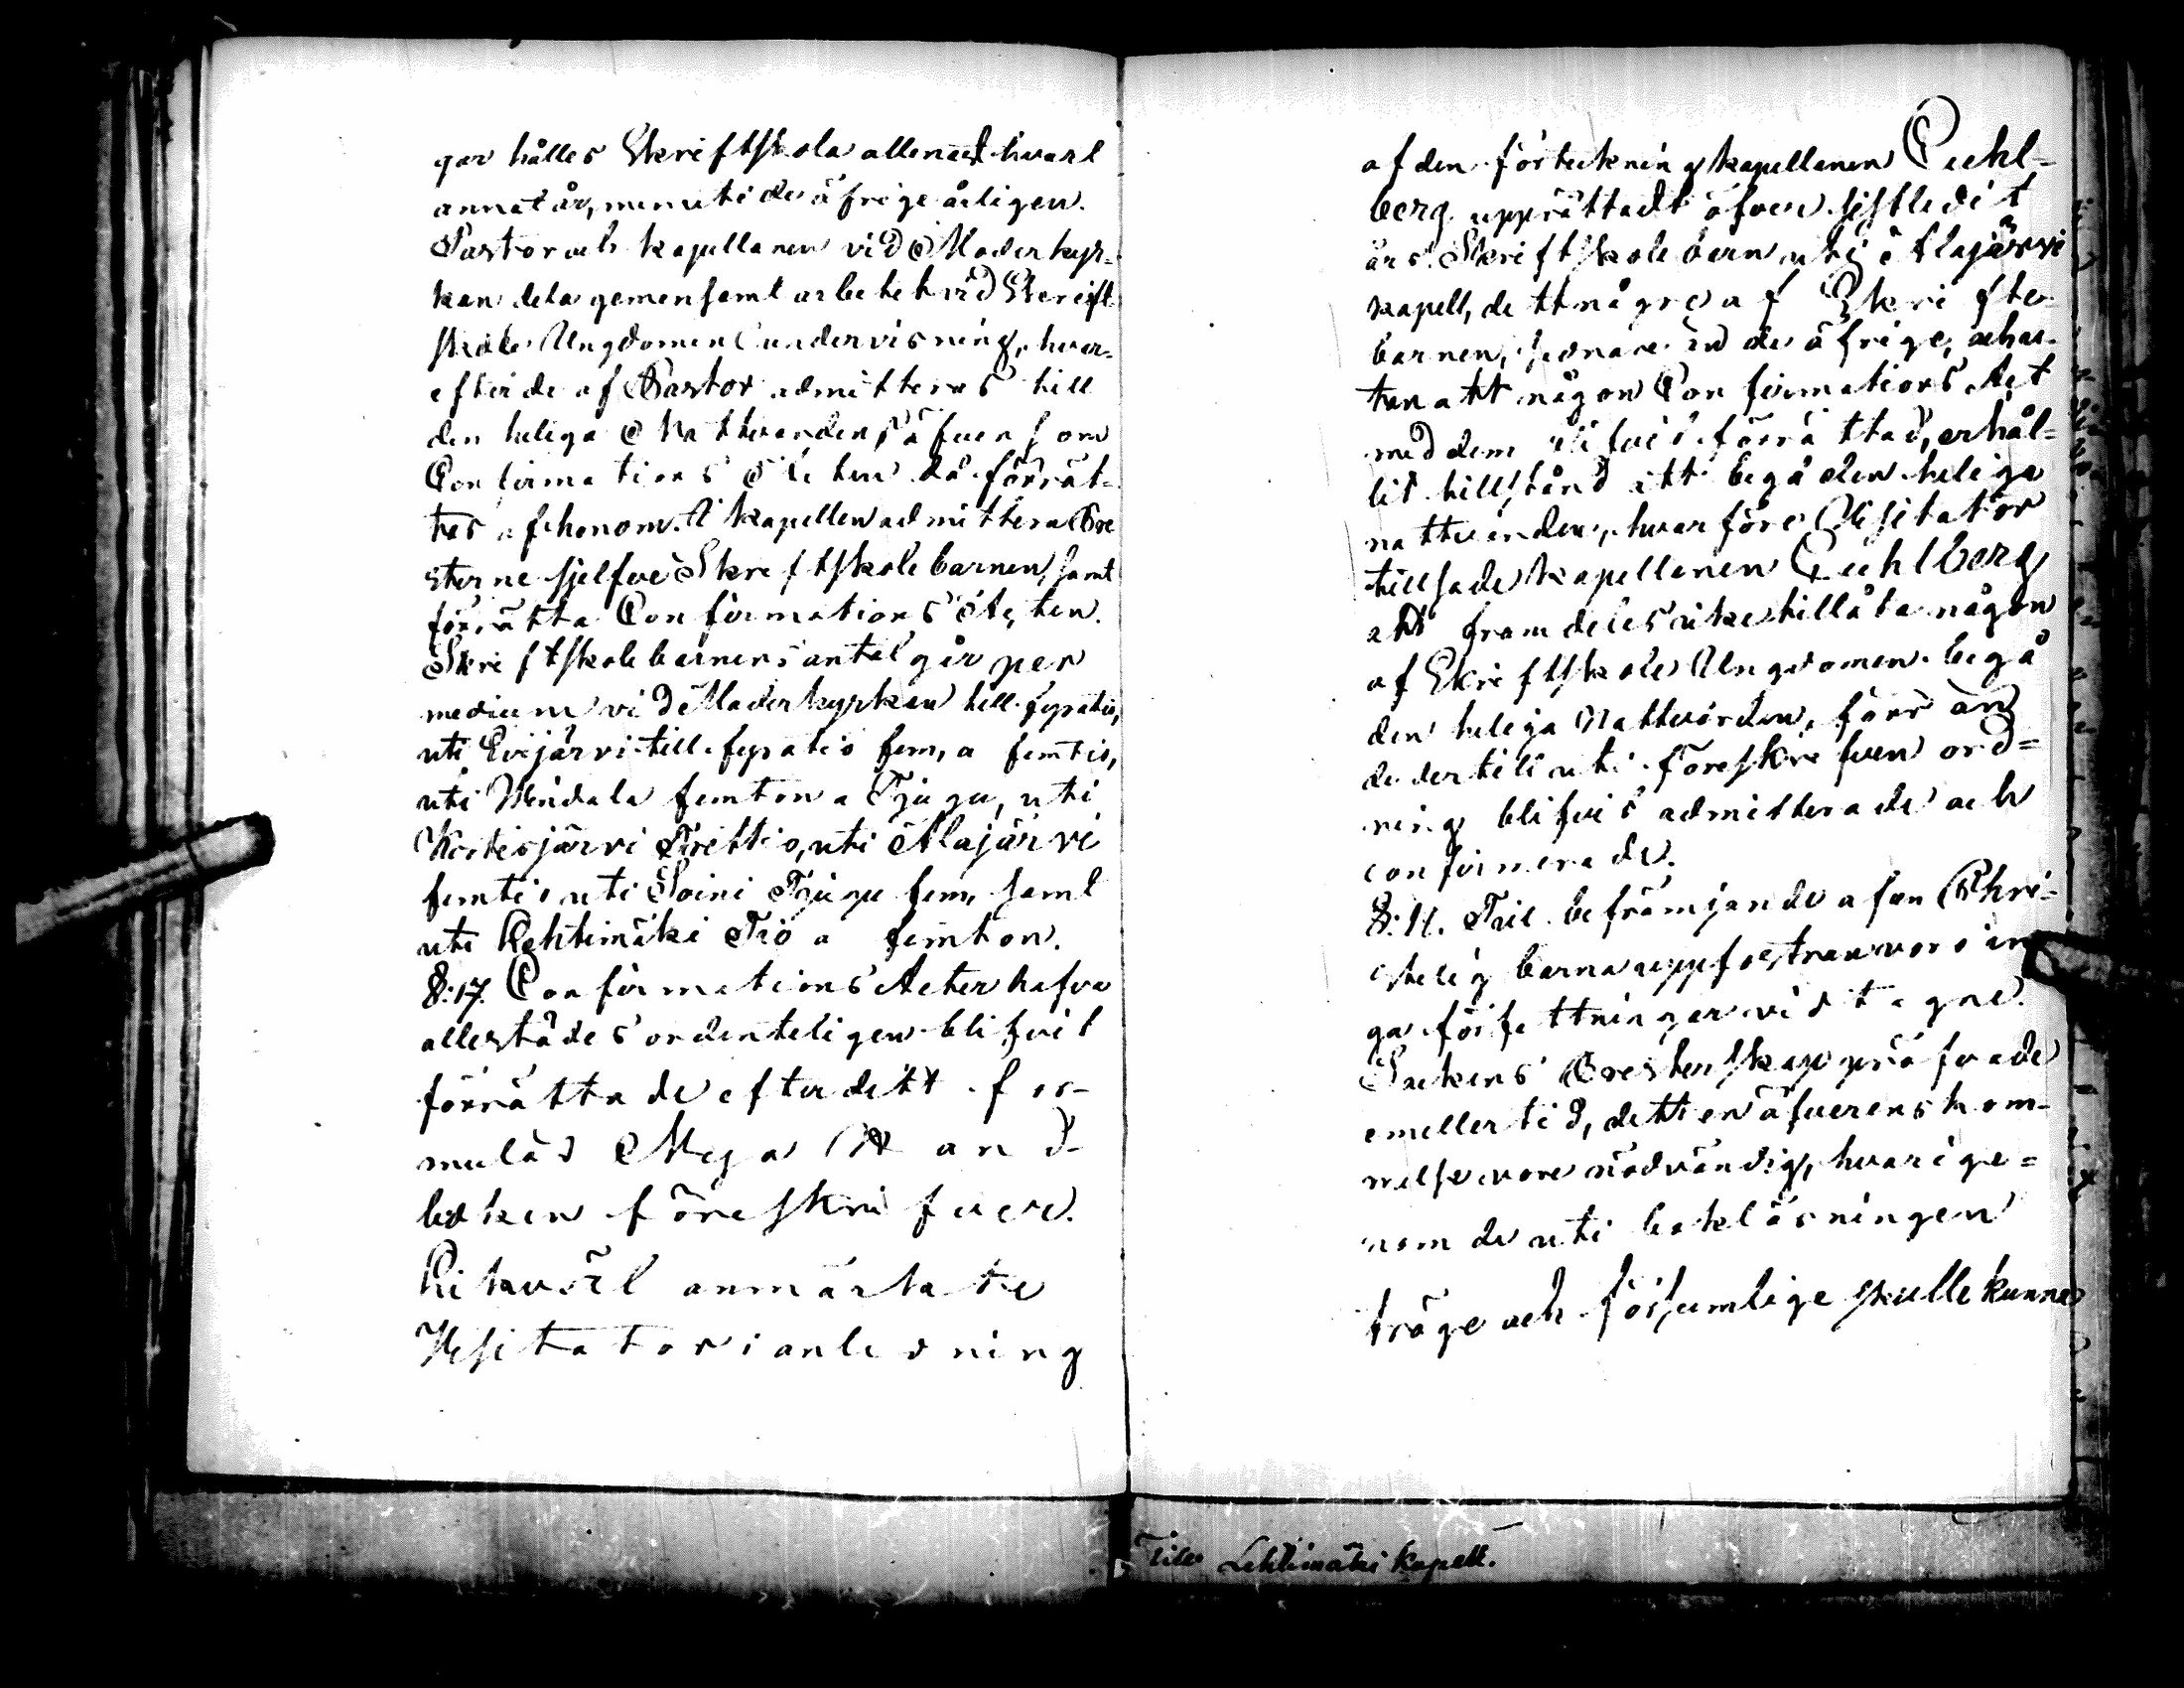 gor hålles Skriftskola allenast hvart
annat år, men uti de öfrige årligen.
Pastor och kapellanen vid Moderkyr-
kan dela gemensamt arbetet vid Skrift
skole Ungdomens undervisning, hvar-
efter de af Pastor admitteras till
den heliga Nattvarden, äfven som
Confirmations Acten då förrät-
tas af honom. I kapellen admittera Pre
sterne sjelfve Skriftskolebarnen, samt
förrätta Confirmations Acten.
Skriftskolebarnens antal går per
medium vid Moderkyrkan till fyratio,
uti Evijärvi till fyratio fem, a femtio,
uti Windala femton a Tjugu, uti
Kortesjärvi Trettio, uti Alajärvi
femtio uti Soini Tjugu fem, samt
uti Lehtimäki Tio a femton.
§:17. Confirmations Acter hafva
allestädes ordenteligen blifvit
förrättade efter dett for-
mulär Nya Hand-
boken föreskrifver.
Likväl anmärkte
Visitator i anledning
af den förteckning kapellanen Cuhl-
berg upprättadt öfver sistledit
års Skriftskolebarn uti Alajärvi
kapell, det några af Skrifte
barnen, senare än de öfrige, och u-
tan att någon Confirmations Act
med dem blifvit förrättad, erhål-
lit tillstånd att begå den heliga
nattvarden, hvarföre Visitator
tillsade kapellanen Cuhlberg
att framdeles icke tillåta någon
af Skriftskole Ungdomen begå
den heliga Nattvarden, förr än
de dertill uti föreskrifven ord=
ning blifvit admitterade och
confirmerade.
Till befrämjande af en Chri-
stelig barnauppfostran voro in
ga författningar vidtagne.
Sockens Presterskap pröfvade
emellertid, dett en öfverenskom-
melse vore nödvändig, hvarige=
nom de uti bokläsningen
tröge och försumlige skulle kunna
Till Lehtimäki kapell.